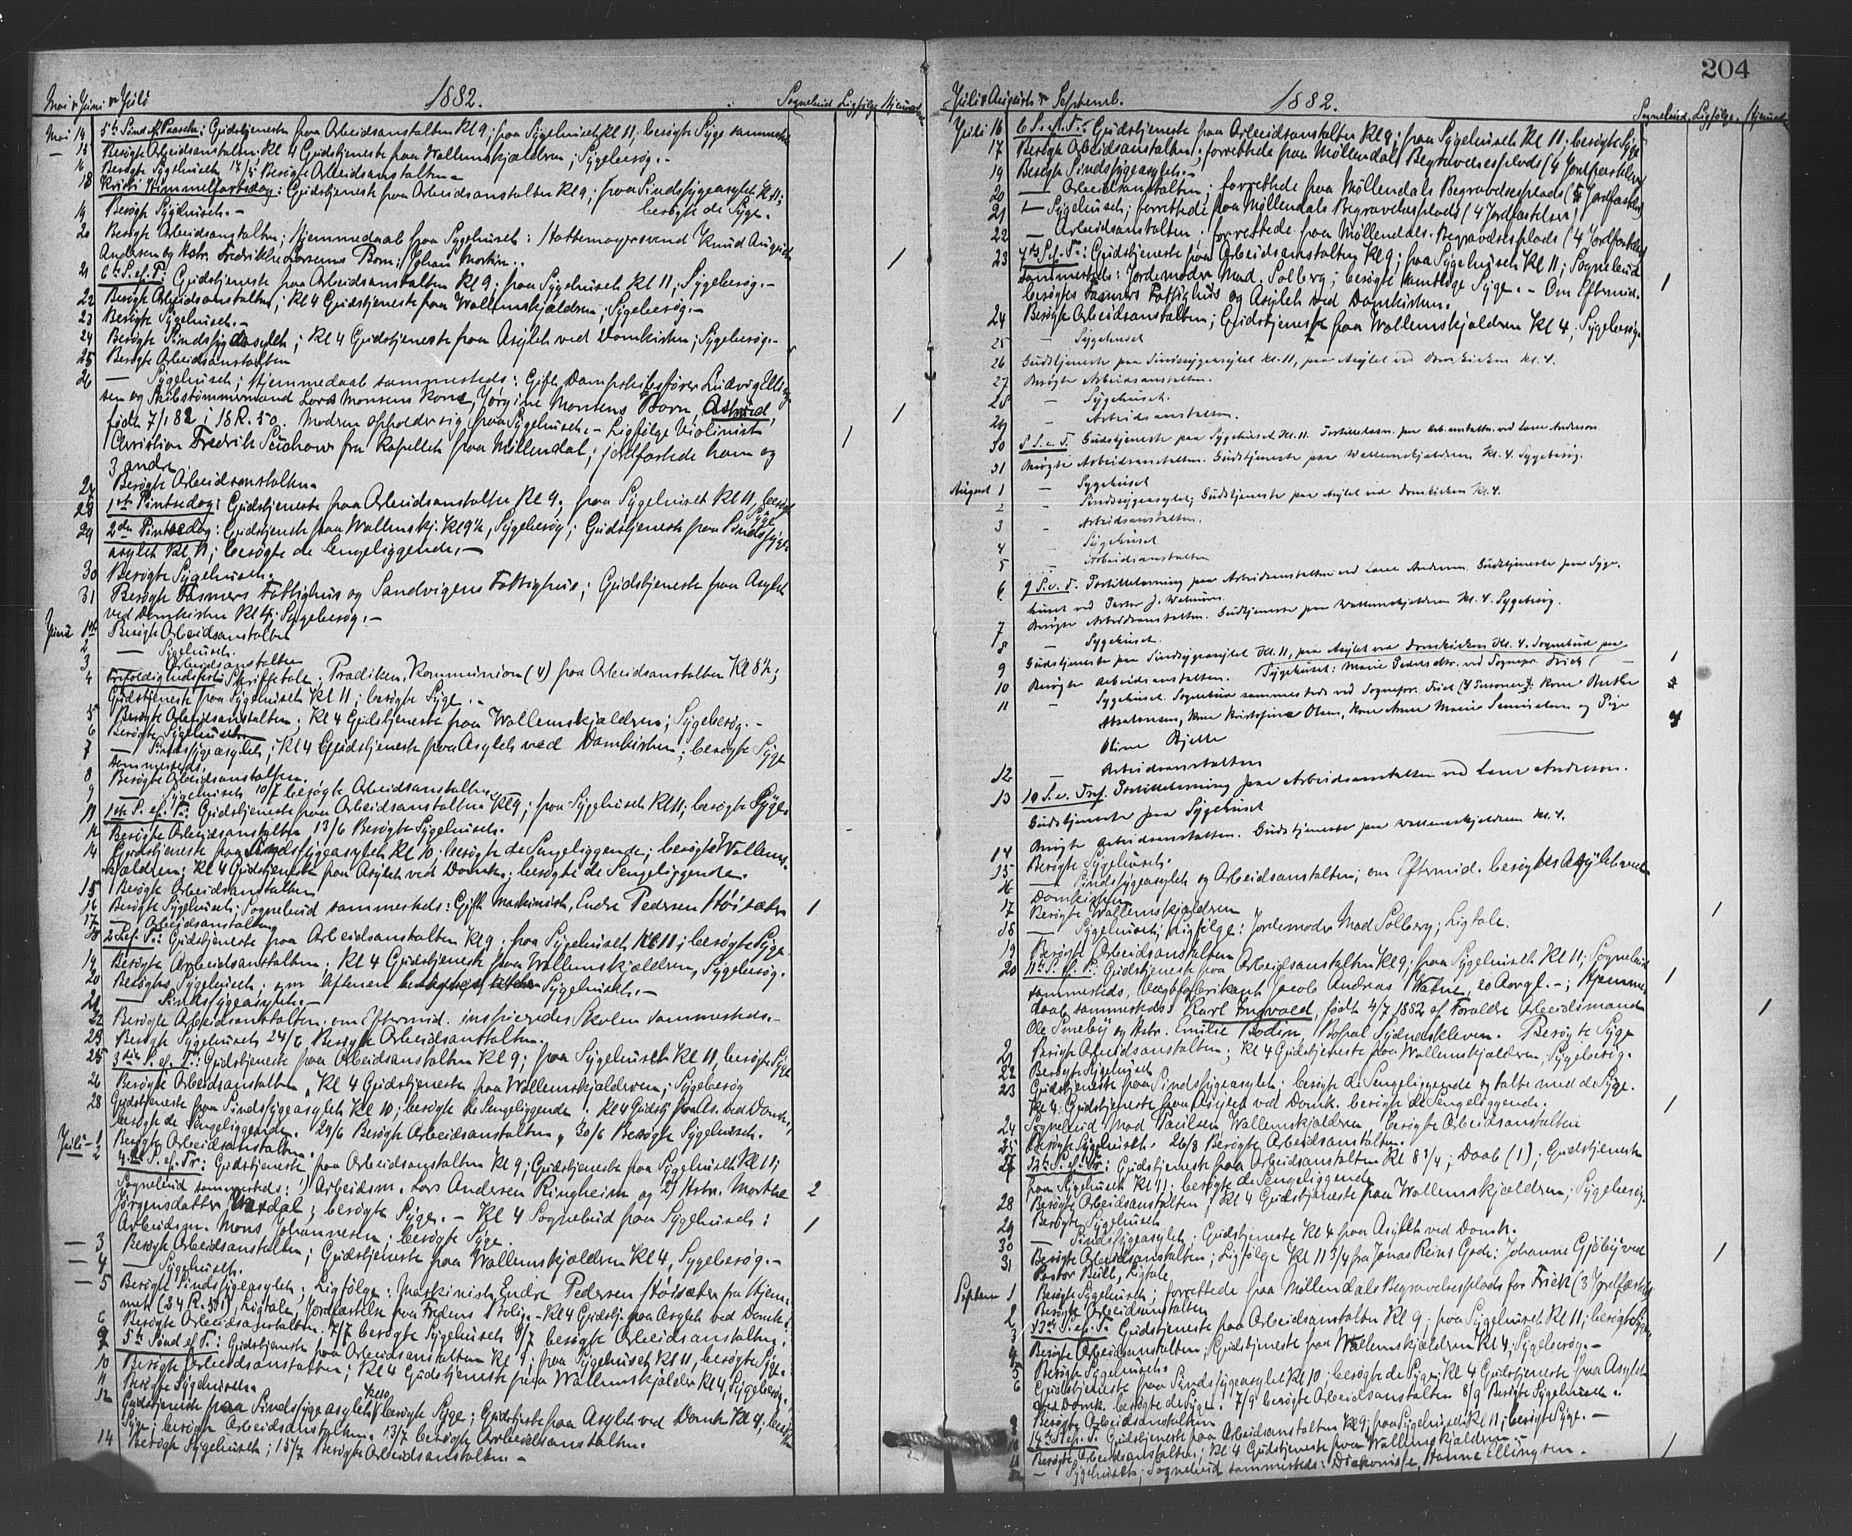 204
Mai & Juni & Juli 1882. Sognebud Ligfølge Hjemmedaab
Mai 14 5te Sønd. e. Paaske: Gudstjeneste paa Arbeidsanstalten Kl 9; paa Sygehuset Kl 11; besøgte Syge sammesteds
— 15 Besøgte Arbeidsanstalten. Kl 4 Gudstjeneste paa Wallemskjældren; Sygebesøg. –
16 Besøgte Sygehuset. 17/5 Besøgte Arbeidsanstalten –
18 Kristi Himmelfartsdag: Gudstjeneste paa Arbeidsanstalten Kl 9; paa Sindssygeasylet Kl 11;
besøgte de Syge. –
19 Besøgte Sygehuset. –
20 Besøgte Arbeidsanstalten; Hjemmedaab paa Sygehuset: Hattemagersvend Knud August
Andersen og Hstr. Fredrikke Larsens Barn: Johan Martin. . 1
21 6te S. ef. P.: Gudstjeneste paa Arbeidsanstalten Kl 9; paa Sygehuset Kl 11, Sygebesøg. –
22 Besøgte Arbeidsanstalten; Kl 4 Gudstjeneste paa Wallemskjældren; Sygebesøg. –
23 Besøgte Sygehuset. –
24 Besøgte Sindssygeasylet; Kl 4 Gudstjeneste paa Asylet ved Domkirken; Sygebesøg. –
25 Besøgte Arbeidsanstalten
26 — Sygehuset; Hjemmedaab sammesteds: Gift Dampskibsfører Ludvig
sen og Skibstømmermand Lars Monsens Kone, Jørgine Monsens Barn, Astrid,
født 7/1 82 i 18 R. 50. Modren opholder sig paa Sygehuset. – Ligfølge Violinist 1
Christian Fredrik fra Kapellet paa Møllendal; jordfæstede ham og 1
3 andre
27 Besøgte Arbeidsanstalten
28 1ste Pintsedag: Gudstjeneste paa Arbeidsanstalten Kl 9; paa Sygehuset Kl 11, besøgte Syge
29 2den Pintsedag: Gudstjeneste paa Wallemskj. Kl 9½, Sygebesøg; Gudstjeneste paa Sindssyge-
asylet Kl 11; besøgte de Sengeliggende. –
30 Besøgte Sygehuset.
31 Besøgte Fasmers Fattighus og Sandvigens Fattighus; Gudstjeneste paa Asylet
ved Domkirken Kl 4; Sygebesøg. –
Juni 1ste Besøgte Arbeidsanstalten
2 — Sygehuset.
3 — Arbeidsanstalten
4 Trefoldighedsfest: Skriftetale, Prædiken, Kommunion (4) paa Arbeidsanstalten Kl 8½;
Gudstjeneste paa Sygehuset Kl 11; besøgte Syge. –
5 Besøgte Arbeidsanstalten; Kl 4 Gudstjeneste paa Wallemskjældren; Sygebesøg. –
6 Besøgte Sygehuset
7 — Sindssygeasylet; Kl 4 Gudstjeneste paa Asylet ved Domkirken; besøgte Syge
sammesteds.
8 Besøgte Arbeidsanstalten.
9 — Sygehuset 10/7 besøgte Arbeidsanstalten
11 1ste S. ef. Tr.: Gudstjeneste paa Arbeidsanstalten Kl 9; paa Sygehuset Kl 11; besøgte Syge
12 Besøgte Arbeidsanstalten 13/6 Besøgte Sygehuset.
14 Gudstjeneste paa Sindssygeasylet Kl 10; besøgte de Sengeliggende; besøgte Wallems-
kjældren; Kl 4 Gudstjeneste paa Asylet ved Domk.; besøgte de Sengeliggende.
15 Besøgte Arbeidsanstalten
16 Besøgte Sygehuset; Sognebud sammesteds: Gift Maskinist, Endre Pedersen Høisæter 1
17 — Arbeidsanstalten
18 2 S. ef. Tr.: Gudstjeneste paa Arbeidsanstalten Kl 9; paa Sygehuset Kl 11; besøgte Syge
19 Besøgte Arbeidsanstalten. Kl 4 Gudstjeneste paa Wallemskjældren, Sygebesøg.
20 Besøgte Sygehuset; om Aftenen Sygehuset. –
21 — Sindssygeasylet. –
22 Besøgte Arbeidsanstalten; om Eftermid. inspiceredes Skolen sammesteds. –
23 Besøgte Sygehuset 24/6, Besøgte Arbeidsanstalten.
25 3die S. ef. Tr.: Gudstjeneste paa Arbeidsanstalten Kl 9; paa Sygehuset Kl 11, besøgte Syge
26 Besøgte Arbeidsanstalten, Kl 4 Gudstjeneste paa Wallemskjældren; Sygebesøg
28 Gudstjeneste paa Sindssygeasylet Kl 10; besøgte de Sengeliggende. Kl 4 Gudstj. paa As. ved Domk.,
besøgte de Sengeliggende. 29/6 Besøgte Arbeidsanstalten, 30/6 Besøgte Sygehuset.
Juli – 1 Besøgte Arbeidsanstalten.
2 4de S. ef. Tr: Gudstjeneste paa Arbeidsanstalten Kl 9; Gudstjeneste paa Sygehuset Kl 11;
Sognebud sammesteds: 1) Arbeidsm. Lars Andersen Ringheim og 2) Hstr. Marthe 2
Jørgensdatter Aardal; besøgte Syge. – Kl 4 Sognebud paa Sygehuset: 1
Arbeidsm. Mons Johannesen; besøgte Syge.
— 3 Besøgte Arbeidsanstalten; Gudstjeneste paa Wallemskjældren Kl 4, Sygebesøg. –
— 4 — Sygehuset.
— 5 Besøgte Sindssygeasylet; Ligfølge: Maskinist Endre Pedersen Høisæter fra Hjem-
met (24 R. ), Ligtale, Jordfæstelse paa Fredens Bolig. – Kl 4 Gudstj. paa Asylet ved Domk.;
6 Besøgte Arbeidsanstalten. 7/7 besøgte Sygehuset 8/7 besøgte Arbeidsanstalten.
9 5te Sønd ef. T.: Gudstjeneste paa Arbeidsanstalten Kl 9; paa Sygehuset Kl 11, besøgte Syge.
10 Besøgte Arbeidsanstalten; Kl 4 Gudstjeneste paa Wallemskjælder Kl 4, Sygebesøg.
11 Besøgte Sygehuset.
12 Gudstjeneste paa Sindssygeasylet Kl 10, besøgte Syge; Gudstjeneste paa Asylet ved Domk Kl 4, besøgte
Syge; besøgte Arbeidsanstalten. 13/7 besøgte Arbeidsanstalten.
14 Besøgte Sygehuset; 15/7 besøgte Arbeidsanstalten –
Juli & August & Septemb. 1882. Sognebud. Ligfølge. Hjemmedaab
Juli 16 6 S. ef. Tr.: Gudstjeneste paa Arbeidsanstalten Kl 9; paa Sygehuset Kl 11; besøgte Syge
17 Besøgte Arbeidsanstalten; forrettede paa Møllendals Begravelsesplads (4 Jordfæstelser)
19 Besøgte Sindssygeasylet. –
20 — Arbeidsanstalten; forrettede paa Møllendals Begravelsesplads ( Jordfæstelser)
21 — Sygehuset; forrettede paa Møllendals Begravelsesplads (4 Jordfæstelser)
22 — Arbeidsanstalten; forrettede paa Møllendals Begravelsesplads (4 Jordfæstelser)
23 7de S. ef. Tr.: Gudstjeneste paa Arbeidsanstalten Kl 9; paa Sygehuset Kl 11; Sognebud
sammesteds: Jordemoder Mad. Solberg; besøgte samtlige Syge. – Om Eftermid. 1
besøgtes Fasmers Fattighus og Asylet ved Domkirken.
24 Besøgte Arbeidsanstalten; Gudstjeneste paa Wallemskjældren Kl 4, Sygebesøg.
25 — Sygehuset
26 Gudstjeneste paa Sindssygeasylet kl. 11, paa Asylet ved Domkirken kl. 4.
27 Besøgte Arbeidsanstalten.
28 — Sygehuset.
29 — Arbeidsanstalten.
30 8 S. e. T. Gudstjeneste paa Sygehuset Kl. 11. Postillelæsn. paa Arb.anstalten ved Lærer Andersen
31 Besøgte Arbeidsanstalten. Gudstjeneste paa Wallemskjældren Kl. 4. Sygebesøg.
August 1 — Sygehuset
2 — Sindssygeasylet; Gudstjeneste paa Asylet ved Domkirken Kl. 4.
3 — Arbeidsanstalten.
4 — Sygehuset
5 — Arbeidsanstalten
6 9 S. e. T. Postillelæsning paa Arbeidsanstalten ved Lærer Andersen. Gudstjeneste paa Syge-
huset ved Pastor J.
7 Besøgte Arbeidsanstalten. Gudstjeneste paa Wallemskjældren Kl. 4. Sygebesøg.
8 — Sygehuset.
9 Gudstjeneste paa Sindssygeasylet Kl. 11, paa Asylet ved Domkirken Kl. 4. Sognebud paa
Sygehuset: Marie Pedersdtr. ved Sognepr. Frick. — 1
10 Besøgte Arbeidsanstalten.
11 — Sygehuset. Sognebud sammesteds ved Sognepr. Frick (4 Personer): Kone Berthe
Absalonsen, Kone Kristofine Olsen, Kone Anne Marie og Pige 4
Oline Bjelke
12 — Arbeidsanstalten
13 10 S. e. Tref. Postillelæsning paa Arbeidsanstalten ved Lærer Andersen.
Gudstjeneste paa Sygehuset
14 Besøgte Arbeidsanstalten. Gudstjeneste paa Wallemskjældren Kl. 4.
15 Besøgte Sygehuset.
16 — Sindssygeasylet og Arbeidsanstalten; om Eftermid. besøgtes Asylet ved
Domkirken
17 Besøgte Wallemskjældren
18 — Sygehuset; Ligfølge: Jordemoder Mad Solberg; Ligtale. 1
19 Besøgte Arbeidsanstalten
20 11te S. ef. T.: Gudstjeneste paa Arbeidsanstalten Kl 9; paa Sygehuset Kl 11; Sognebud
sammesteds, Jacob Andreas Watne, 20 Aargl. –; Hjemme- 1
daab sammesteds: Karl Ingvald, født 4/7 1882 af Forældre Arbeidsmand 1
Ole og Hstr. Emilie Bodin, Bopæl Sydnæskleven. Besøgte Syge
21 Besøgte Arbeidsanstalten; Kl 4 Gudstjeneste paa Wallemskjældren, Sygebesøg.
22 Besøgte Sygehuset
23 Gudstjeneste paa Sindssygeasylet; besøgte de Sengeliggende og talte med de Syge.
Kl 4: Gudstjeneste paa Asylet ved Domk. besøgte de Sengeliggende.
24 Sognebud Mad Paulsen Wallemskjældren, besøgte Arbeidsanstalten 1
25 Besøgte Sygehuset. 26/8 Besøgte Arbeidsanstalten.
27 12te S. ef. Tr: Gudstjeneste paa Arbeidsanstalten Kl 8 3/4; Daab (1); Gudstjeneste
paa Sygehuset Kl 11; besøgte de Sengeliggende
28 Besøgte Arbeidsanstalten; Kl 4 Gudstjeneste paa Wallemskjældren; Sygebesøg.
29 Besøgte Sygehuset
30 — Sindssygeasylet; Gudstjeneste Kl 4 paa Asylet ved Domk.
31 Besøgte Arbeidsanstalten; Ligfølge Kl 11 3/4 fra Jonas Reins Gade: Johanne Gjøby ved 1
Pastor Bull, Ligtale
Septem 1 Besøgte Sygehuset; forrettede paa Møllendals Begravelsesplads for Frick (3 Jordfæstelser
2 Besøgte Arbeidsanstalten
3 13de S. ef. T. Gudstjeneste paa Arbeidsanstalten Kl 9; paa Sygehuset Kl 11; besøgte Syge
4 Besøgte Arbeidsanstalten, Gudstjeneste paa Wallemskjældren Kl 4; Sygebesøg. –
5 Besøgte Sygehuset.
6 Gudstjeneste paa Sindssygeasylet Kl 10; besøgte de Syge; Kl 4 Gudstjeneste paa Asylet
ved Domk. besøgte de Syge. 7/9 besøgte Arbeidsanstalten 8/9 Besøgte Sygehuset.
9 Besøgte Arbeidsanstalten
10 14de S. ef. T. Gudstjeneste paa Arbeidsanstalten Kl 9; paa Sygehuset Kl 11; besøgte Syge. –
11 Besøgte Arbeidsanstalten; Kl 4 Gudstjeneste paa Wallemskjældren –
— Sygehuset; Sognebud sammesteds: Diakonisse, Hanne Ellingsen. 1